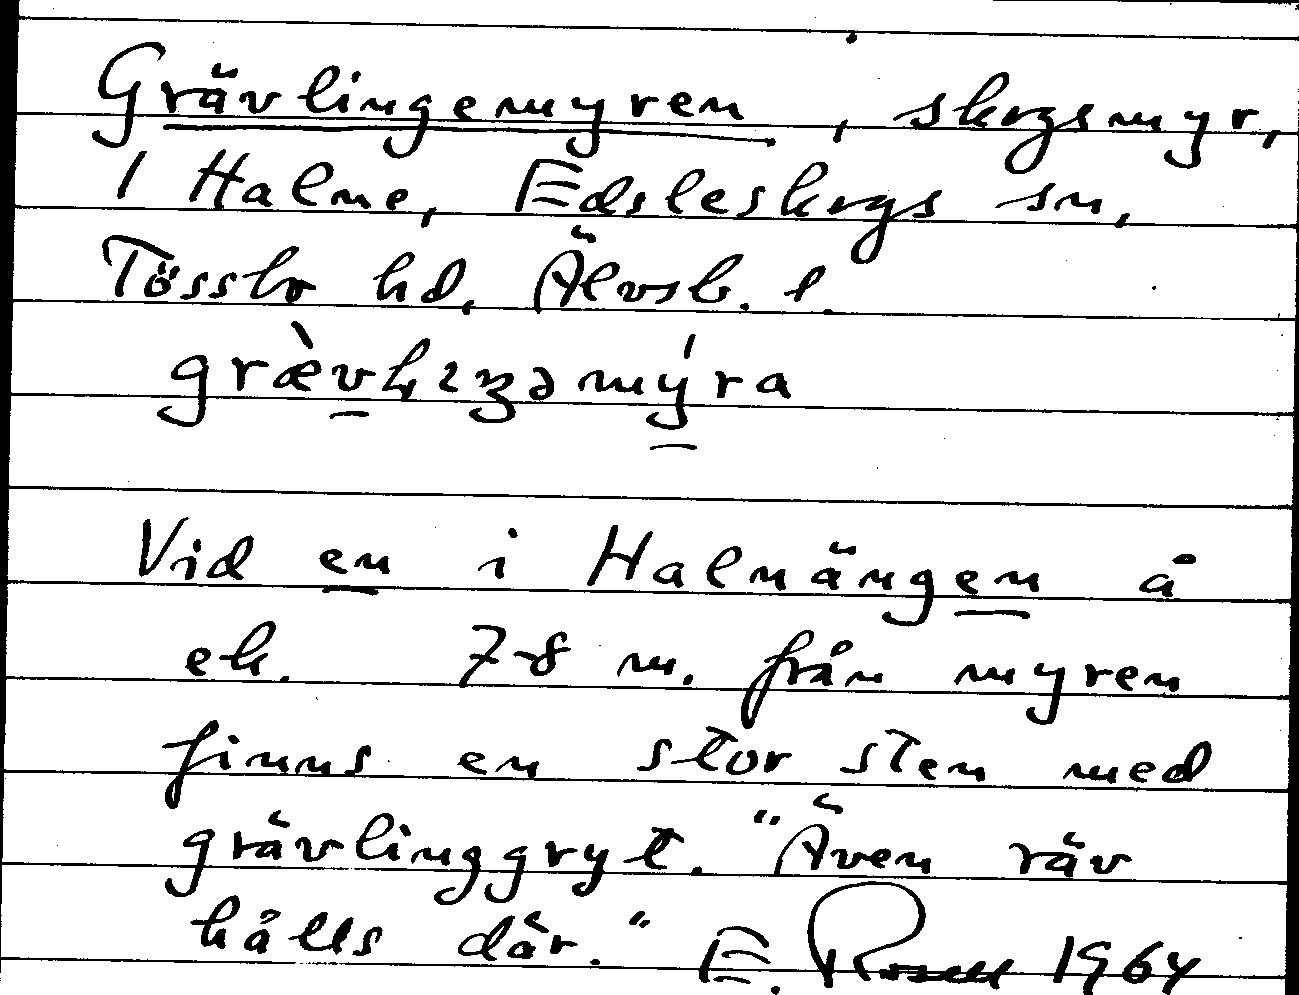 Grävlingemyren, skogsmyr,
I Halne, Edsleskogs sn,
Tössbo hd, Älvsb. l.
Vid en i Halnängen å
ek. 7-8 m. från myren
finns en stor sten med
grävlinggryt. "Även räv
hålls där." E. Rosell 1964